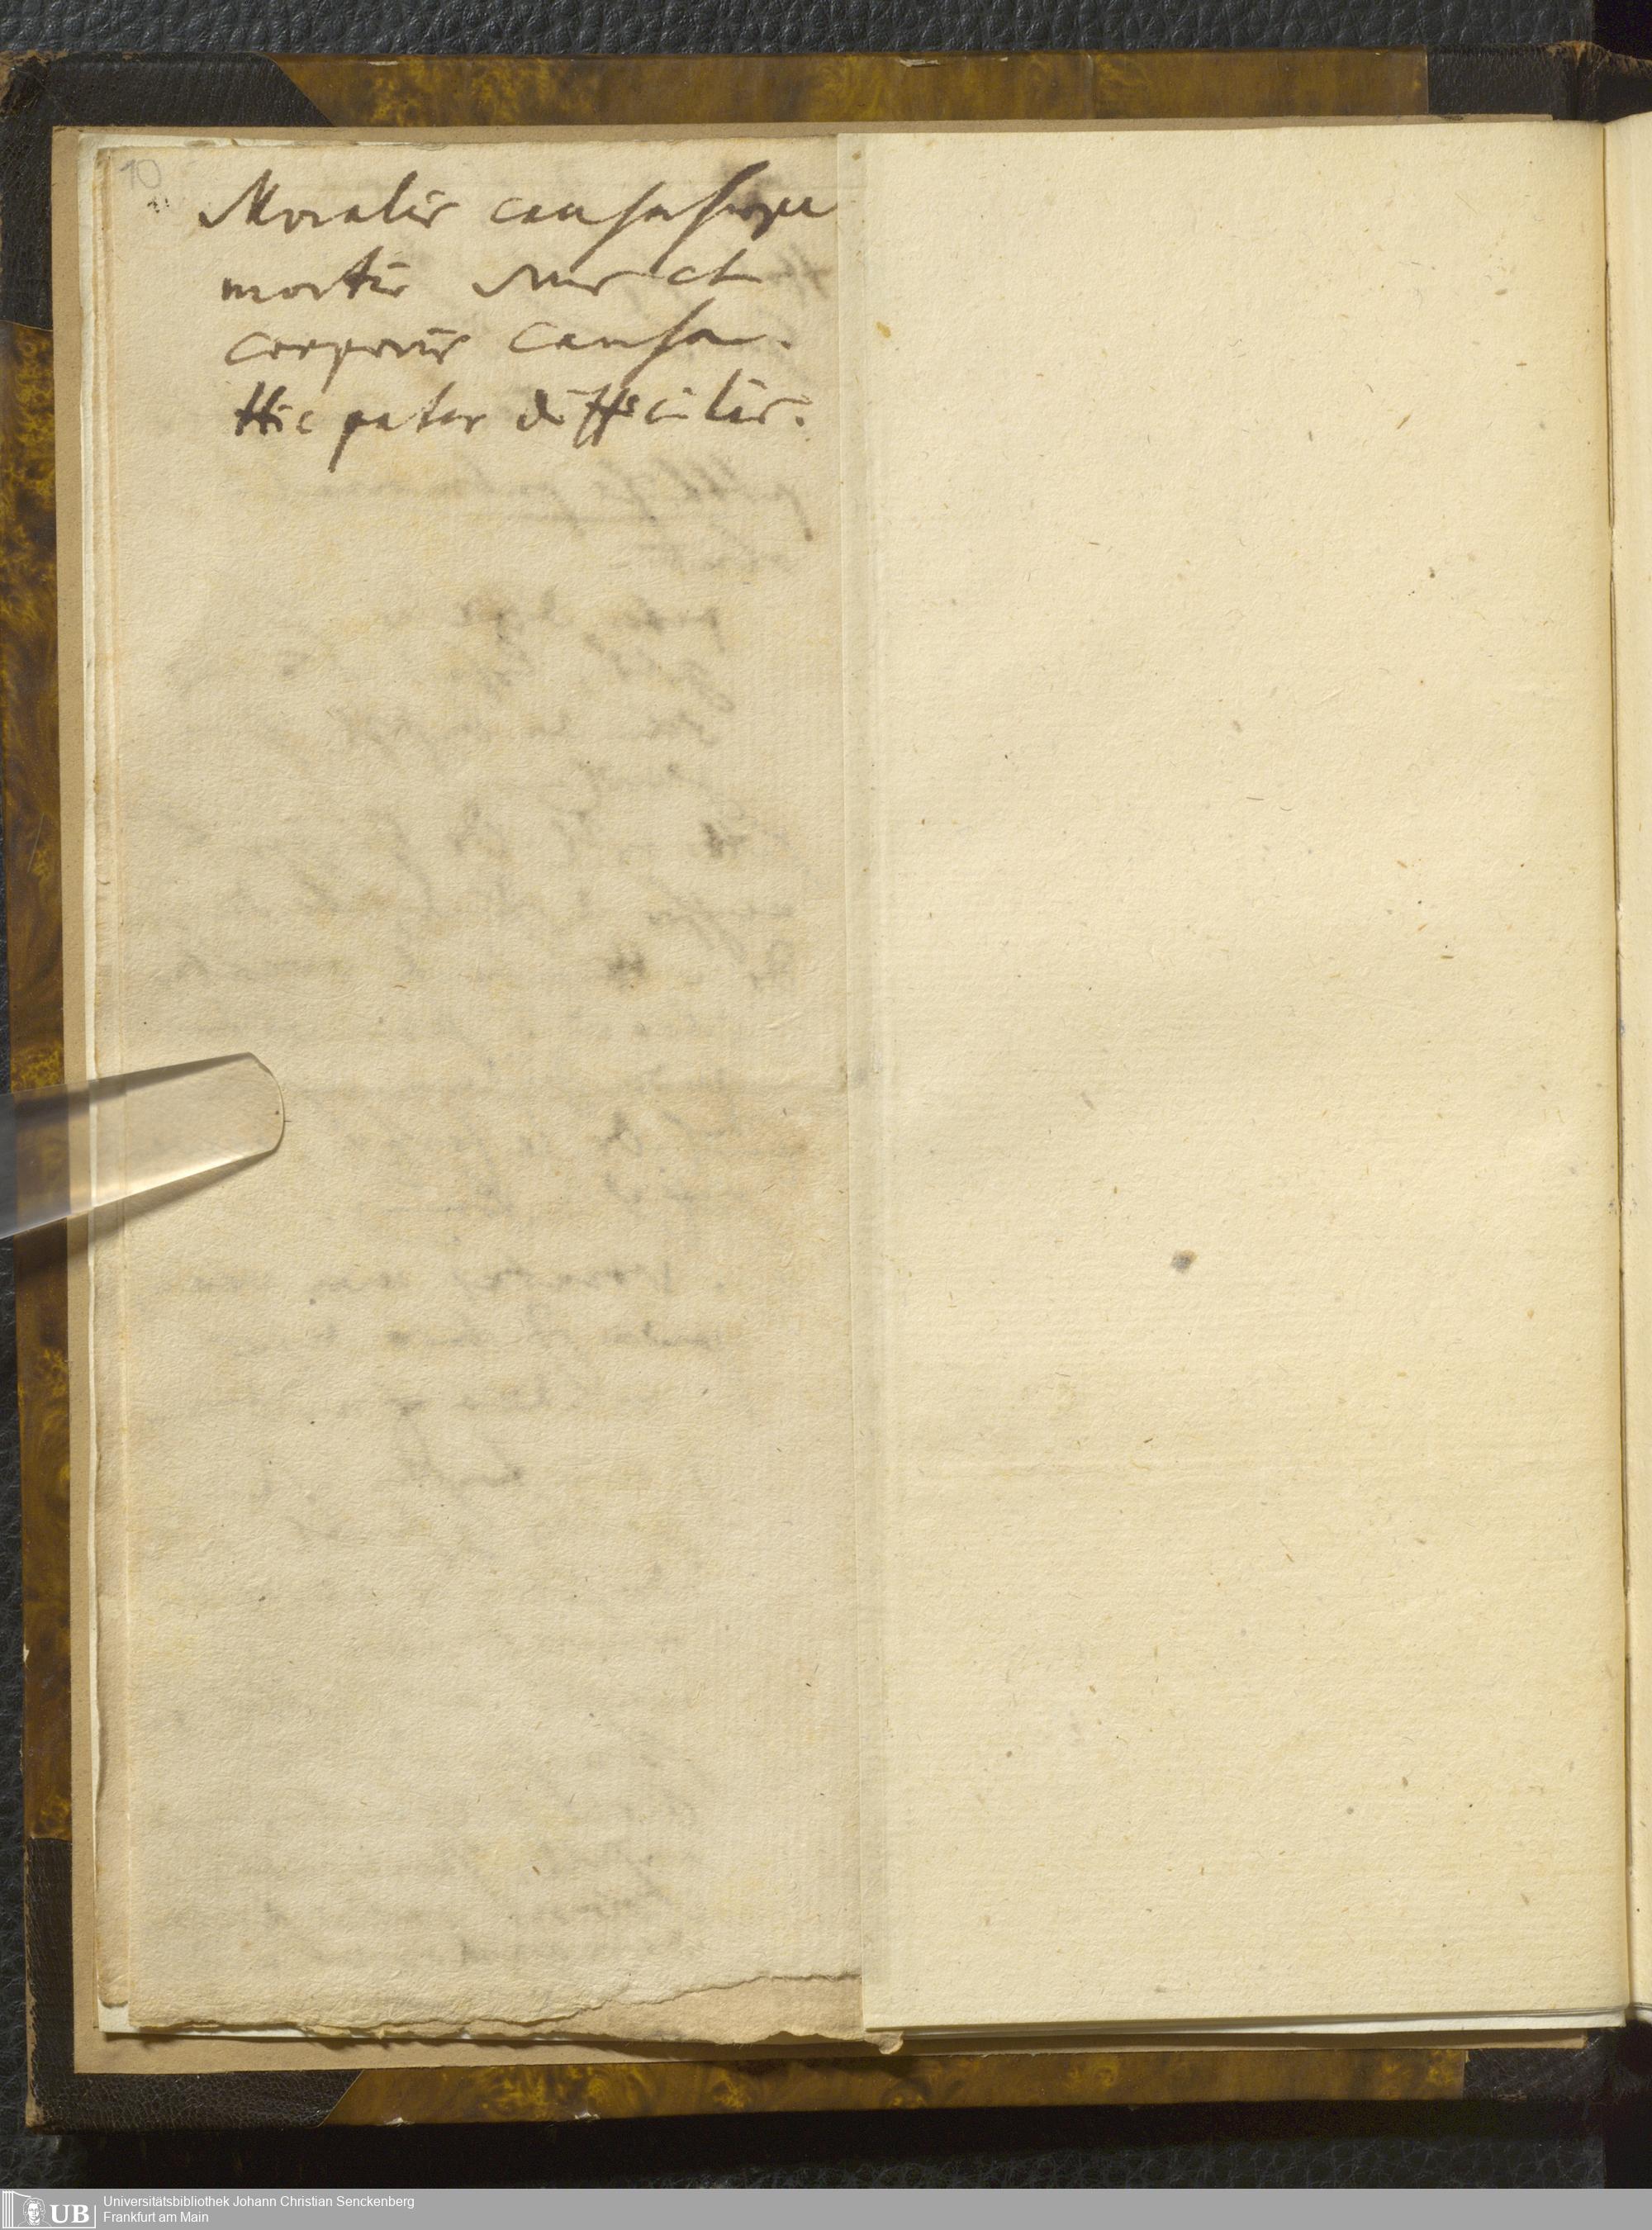 10
Moralis causa saepe
mortis et
corporis causa.
Hic pater difficilis.
UB
Universitätsbibliothek Johann Christian Senckenberg
Frankfurt am Main